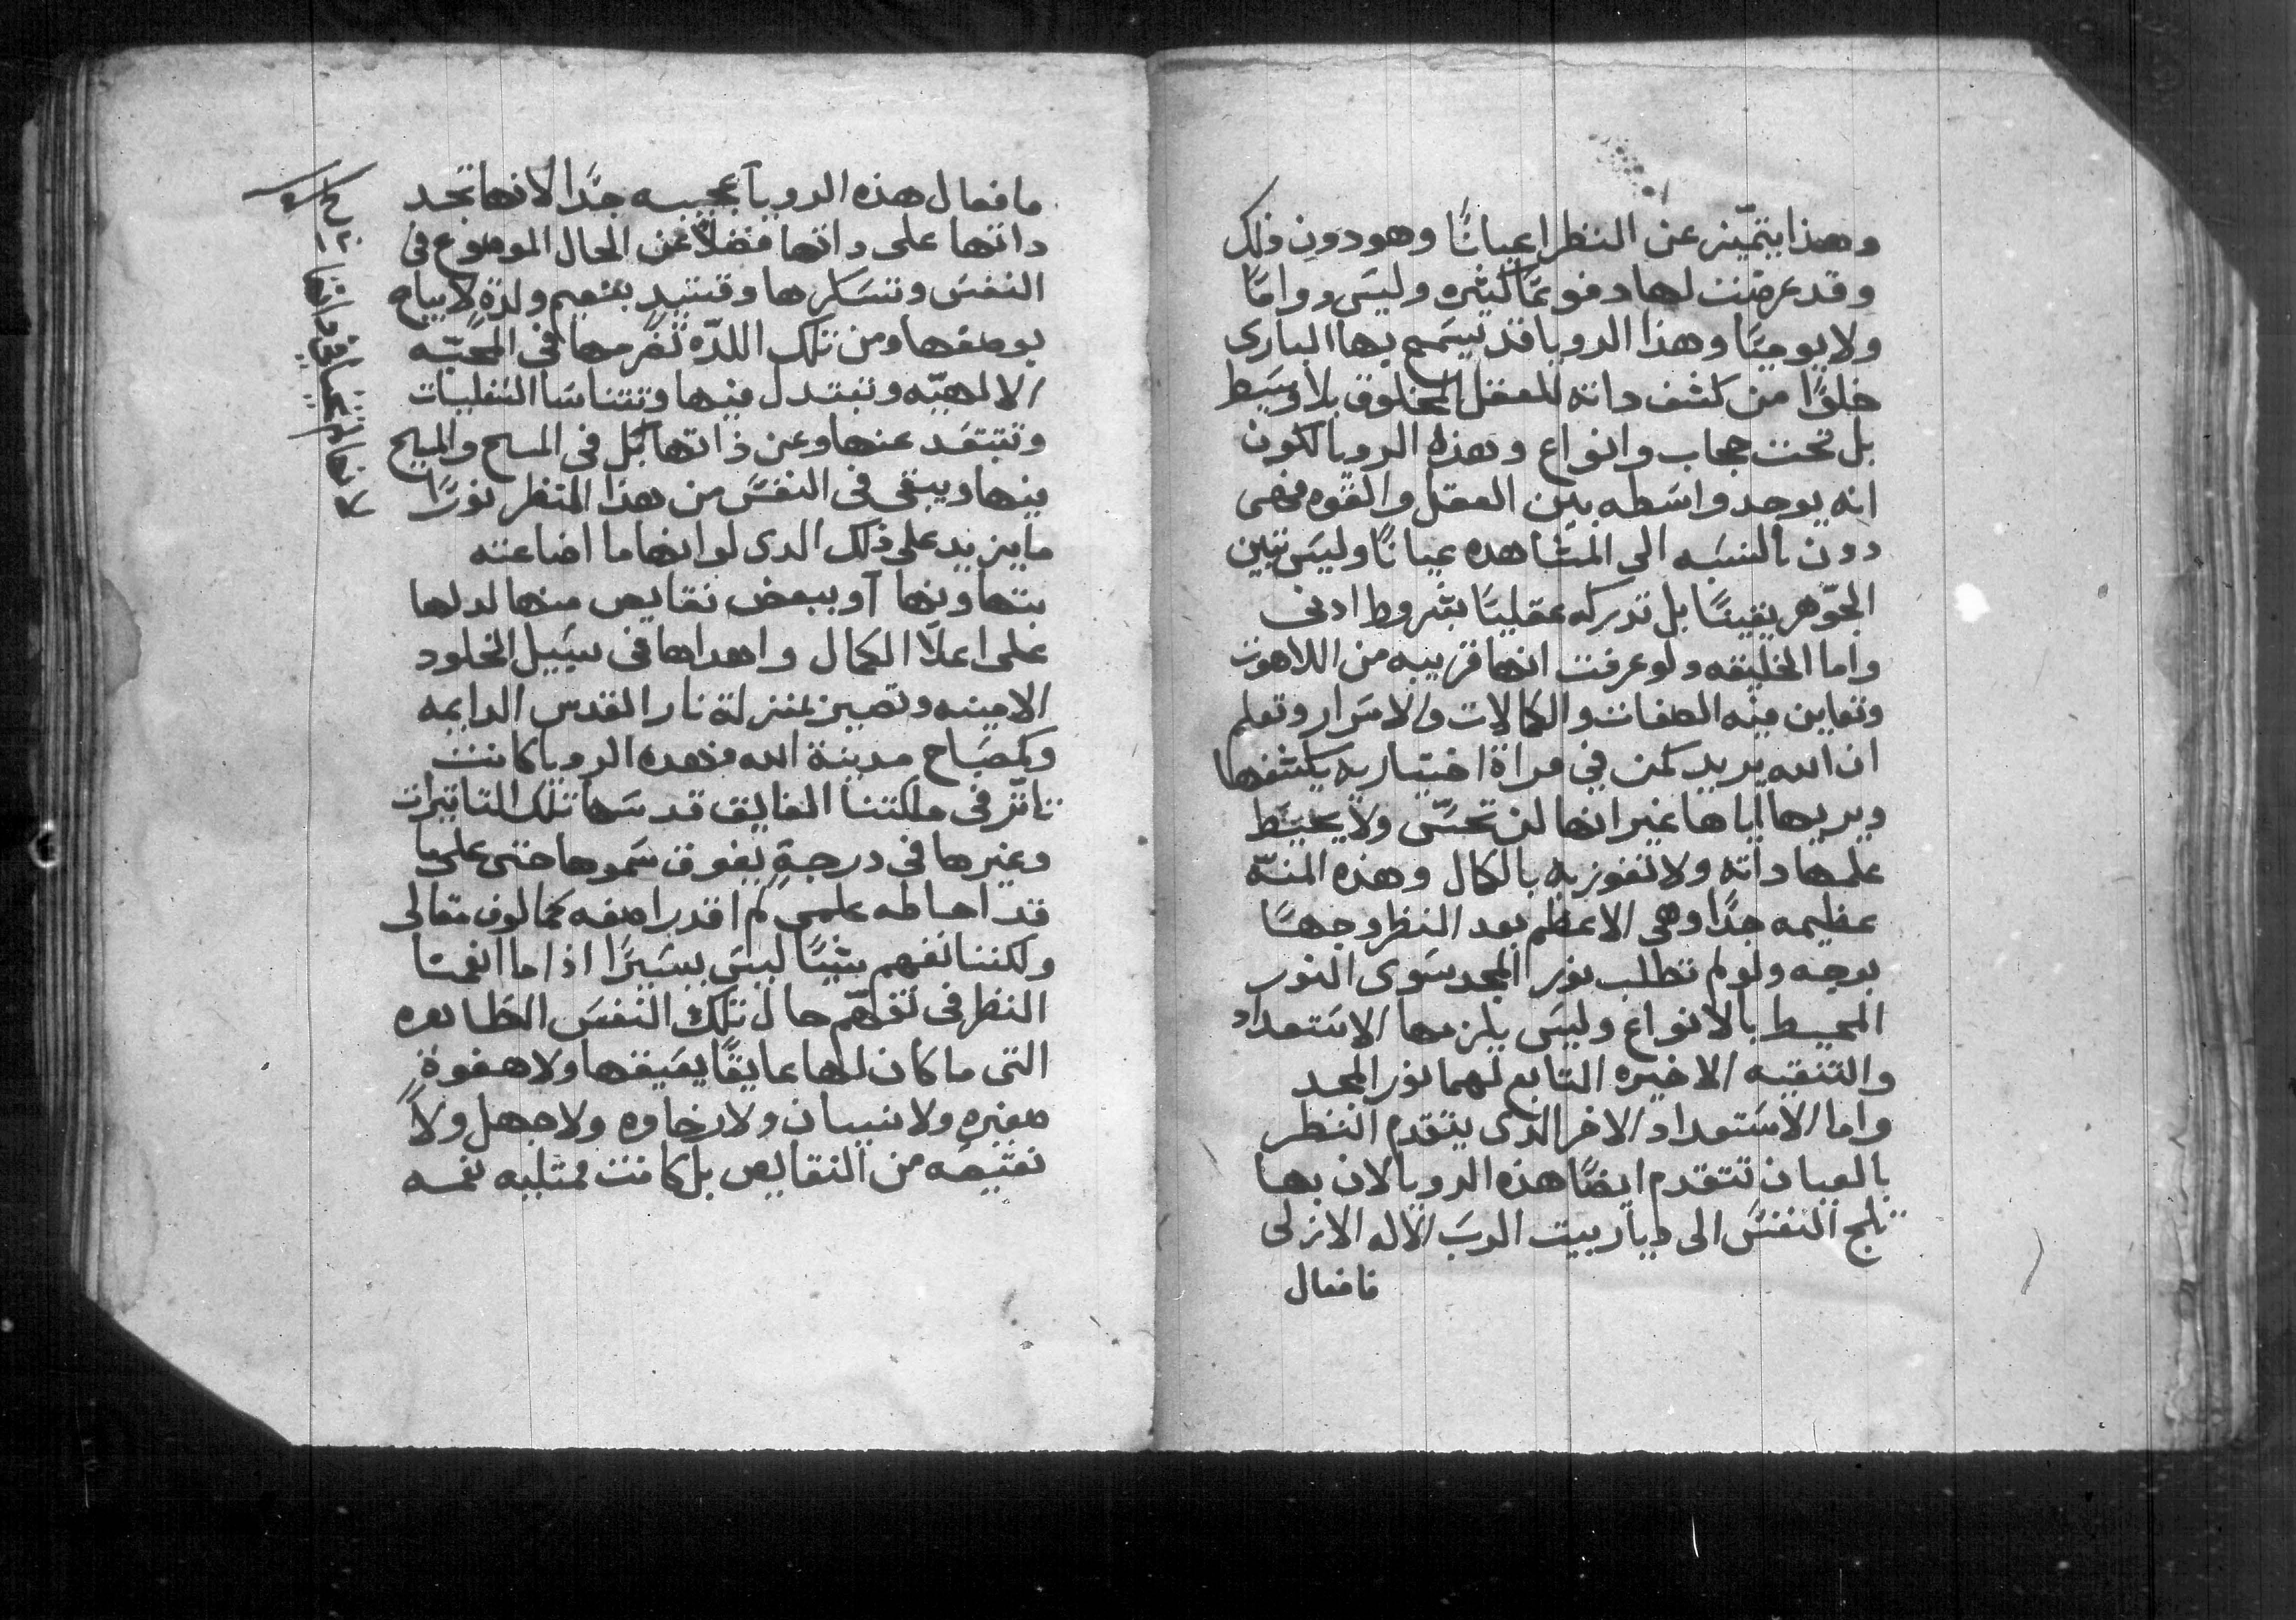 وهذا يتميّز عن النظر اعيانًا وهو دون ذلك
وقد عرضت لها دفوعًا كثيره وليس دوامًا
ولا يوميًا وهذا الرويا قد يسمح بها البارى
خلوًا من كشف داته للعقل المخلوق بلا وسيط
بل تحت حجاب وانواع وهذه الرويا لكون
انه يوجد واسطه بين العقل والقوه فهى
دون بالنسبه الى المشاهده عيانًا وليس تبين
الجوّهر يقينًا بل تدركه عقليًا بشروط ادنى
واما الخليقه ولو عرفت انها قريبه من اللاهوت
وتعاين فيه الصفات والكمالات والاسرار وتعلم
ان الله يريد كمن في مراة اختياريه يكشفها
ويريها اياها غير انها لن تحسّ ولا يحيط
علمها داته ولا تفوز به بالكمال وهذه المنّه
عظيمه جدًا وهى الاعظم بعد النظر وجهًا
بوجه ولو لم تطلب نور المجد سوى النور
المحيط بالانواع وليس يلزمها الاستعداد
والتنقيه الاخيره التابع لهما نور المجد
واما الاستعداد الاخر الدى يتقدم النظر
بالعيان تتقدم ايضًا هذه الرويا لان بها
تلج النفس الى ديار بيت الرب الاله الازلى
فافعال
مافعال هذه الرويا عجيبه جدًا لانها تجد
داتها على داتها فضلًا عن الحال الموضوع في
النفس وتسكرها وقتيدٍ بنعيم ولذةٍ لا يباح
بوصفها ومن تلك اللدّه تضرمها في المحبّه
الالهيّه وتبتدل فيها وتتناسا التقلبات
وتبتعد عنها وعن ذاتها بَل في المسيح والمسيح
فيها ويبقى في النفس من هذا المنظر نورًا
ما يزيد على ذلك الدى لو انها ما اضاعته
بتهاونها او ببعض نقايص منها لدلها
على اعلا الكمال واهداها في سبيل الخلود
الامينه وتصير بمنزلة نار القدس الدايمه
وكمصباح مدينة الله فهده الرويا كانت
تاتّر في ملكتنا الفايق قدسها تلك التاتيرات
وغيرها في درجةٍ يفوق سموها حتى على ما
قد احاطه علمى لم اقدر اصفه كمالوف مقالى
ولكننا نفهم شيًا ليس يسيرًا اذا ما انعمنا
النظر في تفهّم حال تلك النفس الطاهره
التى ما كان لها عايقًا يعيقها ولا هفوةً
صغيره ولا نسيان ولا رخاوه ولا جهل ولا
نقيصه من النقايص بل كانت ممتليه نعمه